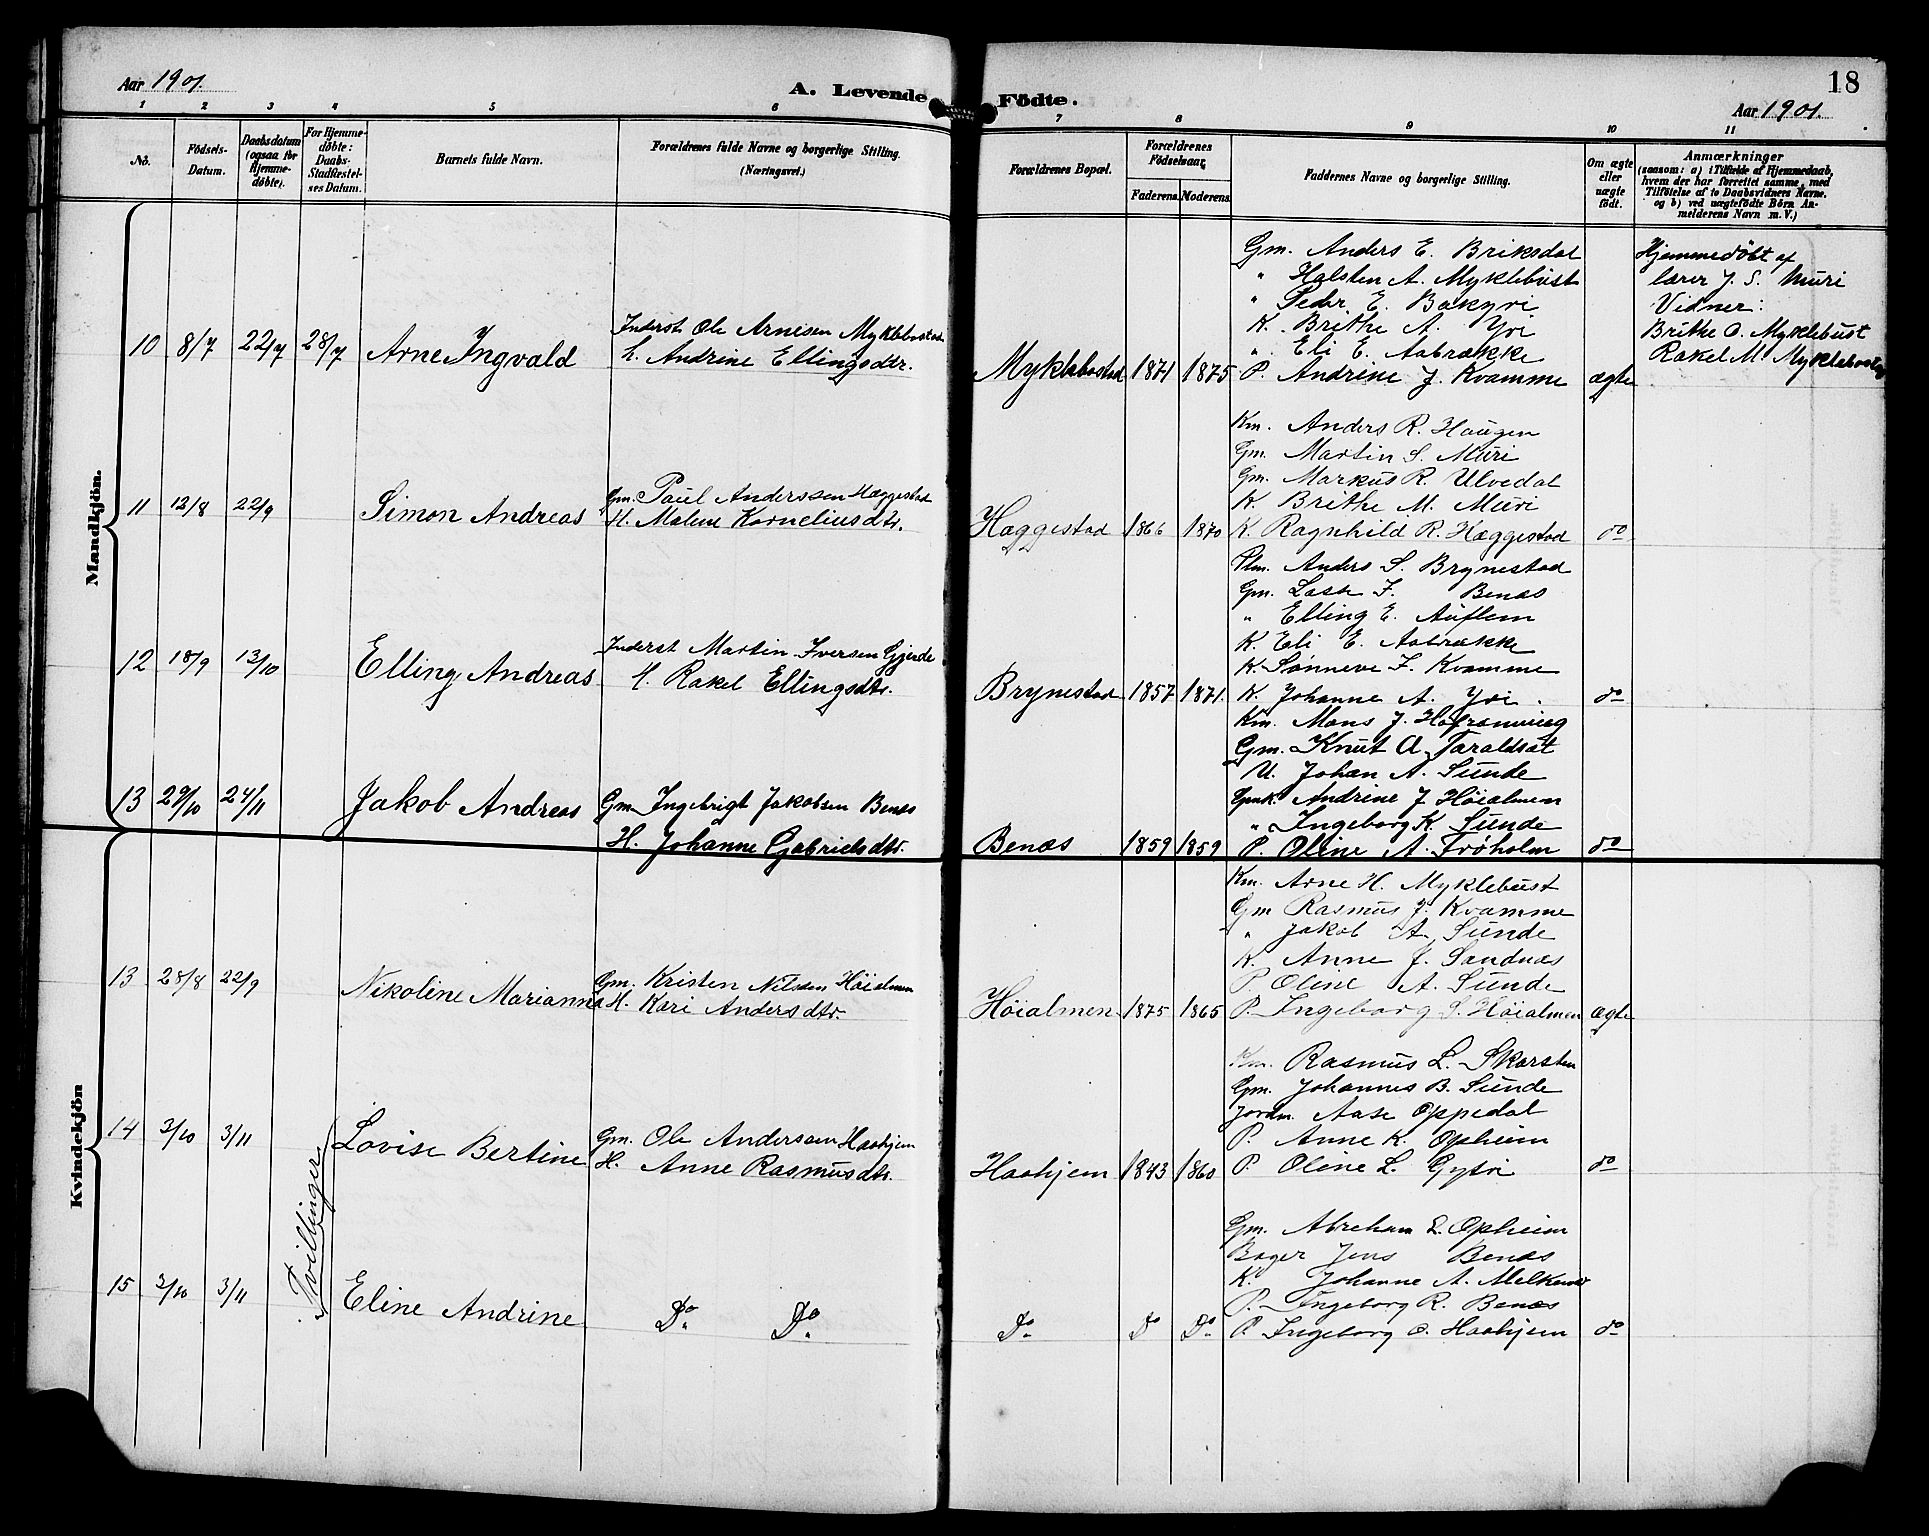 Aar 1901.
A. Levende Födte.
18
Aar 1901.
1 2 3 4 5 6 7 8 9 10 11
No.
Födsels-Datum.
Daabsdatum (ogsaa for Hjemme-döbte).
For Hjemme-döbte: Daabs-Stadfæstel-ses Datum.
Barnets fulde Navn.
Forældrenes fulde Navne og borgerlige Stilling. (Næringsvei.)
Forældrenes Bopæl.
Forældrenes Födselsaar,
Faderens. Moderens.
Faddernes Navne og borgerlige Stilling.
Om ægte eller uægte födt.
Anmærkninger
(saasom: a) i Tilfælde af Hjemmedaab,
hvem der har forrettet samme, med
Tilföielse af to Daabsvidners Navne.
og b) ved uægtefödte Börn An-
melderens Navn m. V.)
Mandkjön.
10 8/7 22/7 28/7 Arne Ingvald
Inderst Ole Arnesen Myklebostad
h. Andrine Ellingsdtr.
Myklebostad 1871 1875
Gm. Anders E. Briksdal
" Halsten A. Myklebust
" Peder E. Bakyri
K. Brithe A. Yri
" Eli E. Aabrække
P. Andrine J. Kvamme
ægte
Hjemmedöbt af
lærer J. S. Muri
Vidner:
Brithe O. Myklebust
Rakel M. Myklebostad
11 12/8 22/9 Simon Andreas
Gm. Paul Anderssen Hæggestad
H. Malene Korneliusdtr.
Hæggestad 1866 1870
Km. Anders R. Haugen
Gm. Martin S. Muri
Gm. Markus R. Ulvedal
K. Brithe M. Muri
K. Ragnhild R. Hæggestad
do
12 18/9 13/10 Elling Andreas
Inderst Martin Iversen Gjerde
H. Rakel Ellingsdtr.
Brynestad 1857 1871.
Anders S. Brynestad
Gm. Lasse J. Benæs
" Elling E. Auflem
K. Eli E. Aabrække
K. Sønneve J. Kvamme
K. Johanne A. Yri.
do
13 29/10 24/11 Jakob Andreas
Gm. Ingebrigt Jakobsen Benæs
H. Johanne Gabrielsdtr.
Benæs 1859 1859
Km. Mons J.
Gm. Knut A. Taraldset
U. Johan A. Sunde
Gmk. Andrine J Höialmen
" Ingeborg K. Sunde
P. Oline A. Frøholm
do
Kvindekjön
13 28/8 22/9 Nikoline Marianna
Gm. Kristen Nilssen Höialmen
H. Kari Andersdtr.
Höialmen 1875 1865
Km. Arne H. Myklebust
Gm Rasmus J. Kvamme
" Jakob A. Sunde
K. Anne J. Sandnæs
P. Oline A. Sunde
P. Ingeborg S. Höialmen
ægte
Tvillinger
14 3/10 3/11 Lovise Bertine
Gm. Ole Anderssen Haahjem
H. Anne Rasmusdtr.
Haahjem 1843 1860
Km. Rasmus L. Skarsten
Gm. Johannes B. Sunde
Jordm. Aase Oppedal
P. Anne K. Opheim
P. Oline L. Gytri
do
15 3/10 3/11 Eline Andrine
Do. Do.
Do. Do Do.
Gm. Abraham L. Opheim
Bager Jens Benæs
K. Johanne A. Melkevol
P. Ingeborg R. Benæs
P. Ingeborg O. Haahjem
do